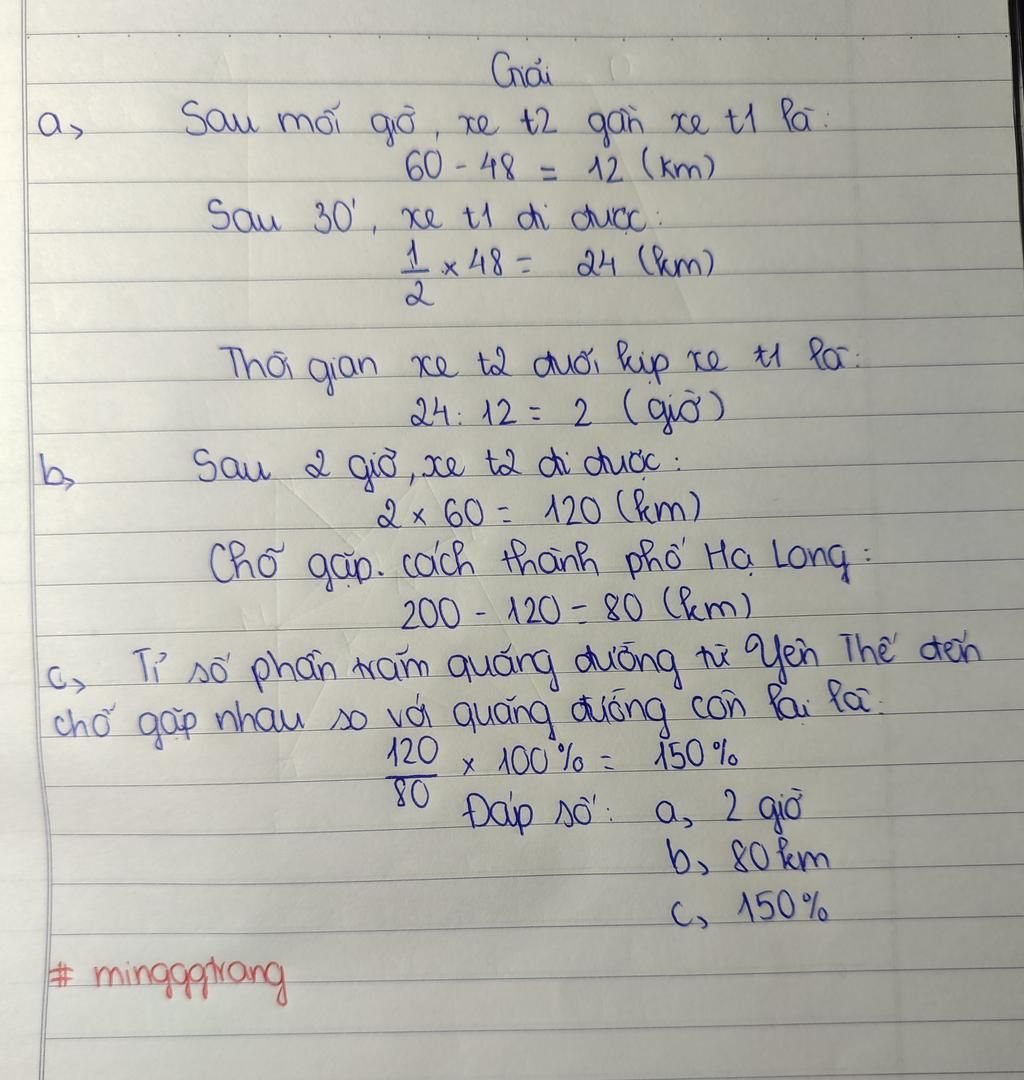 Giải
a, Sau mỗi giờ, xe t2 gần xe t1 là:
60 - 48 = 12 (km)
Sau 30', xe t1 đi được:
1/2 × 48 = 24 (km)
Thời gian xe t2 đuổi kịp xe t1 là:
24 : 12 = 2 (giờ)
b, Sau 2 giờ, xe t2 đi được:
2 × 60 = 120 (km)
Chỗ gặp. cách thành phố Hạ Long:
200 - 120 = 80 (km)
c, Tỉ số phần trăm quãng đường từ Yên Thế đến
chỗ gặp nhau so với quãng đường còn lại là:
120/80 × 100% = 150%
Đáp số: a, 2 giờ
b, 80 km
c, 150%
# mingggtrang